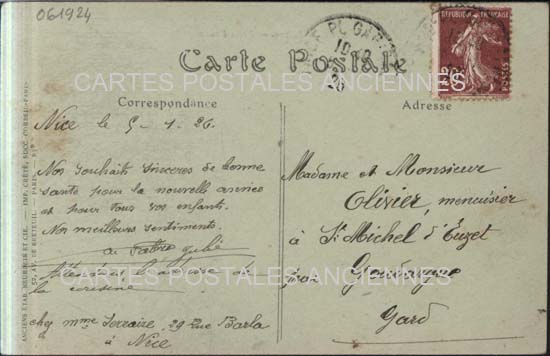 061924
NICE PL. GA
10
26
RÉPUBLIQUE FRANÇAISE
POSTES
Carte Postale
CARTES POSTALES ANCIENNES
Correspondance
Adresse
ANCIENS ÉTAB. NEURDEIN ET CIE. — IMP. CRÉTÉ, SUCC. CORBEIL-PARIS
52, AV. DE BRETEUIL. — PARIS
Nice le 5-1-26.
Nos souhaits sinceres de bonne
santé pour la nouvelle année
et pour tous vos enfants.
Nos meilleurs sentiments.
la cuisine
chez mme 29 Rue Barla
à Nice
Madame et Monsieur
Olivier, menuisier
à St Michel d'Euzet
par
Gard
CARTES POSTALES ANCIENNES